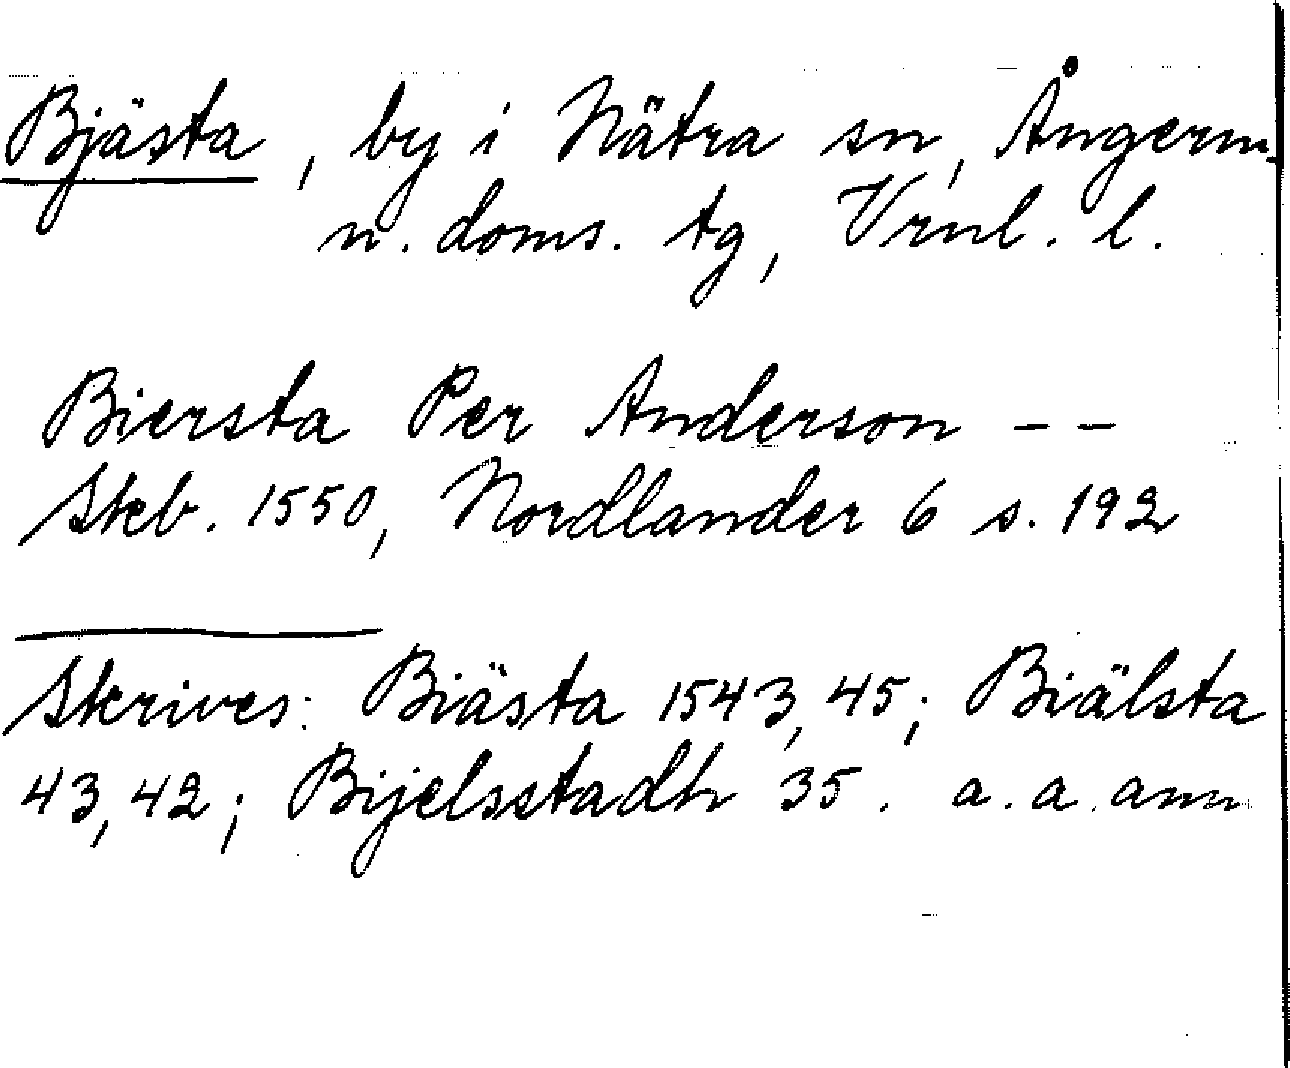 Bjästa, by i Nätra sn, Ångerm.
n. doms. tg, Vrnl. l.
Biersta Per Anderson - -
Skb. 1550, Nordlander 6 s. 192
Skrives: Biästa 1543, 45; Biälsta
43, 42; Bijelsstadh 35. a. a. ann